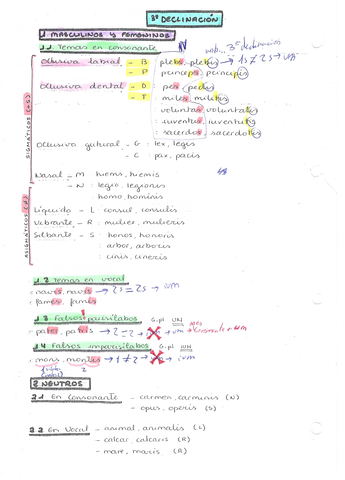 3ª DECLINACIÓN
1 MASCULINOS Y FEMENINOS
1.1 Temas en consonante
Oclusiva labial - B plebs, plebis → 1s ≠ 2s →
- P princeps, principis
Oclusiva dental - D pes, pedis
- T miles, militis
voluntas voluntatis
iuventus, iuventutis
sacerdos, sacerdotis
Oclusiva gutural - G : lex, legis
- C : pax, pacis
SIGMÁTICOS (+S)
Nasal - M hiems, hiemis
- N : legio, legionis
homo, hominis
Líquida - L consul, consulis
Vibrante - R : mulier, mulieris
Silbante - S : honos, honoris
: arbor, arboris
: cinis, cineris
ASIGMÁTICOS
1.2 Temas en vocal
navis, navis → 2s = 2s → ium
fames, famis
1.3 Falsos parisílabos G.pl UM
pater, patris → 2 = 2 → ium → um
1.4 Falsos imparisílabos G.pl UM
mons, montis → 1 ≠ 2 → um → ium
2 NEUTROS
2.1 En Consonante - carmen, carminis (N)
- opus, operis (S)
2.2 En Vocal - animal, animalis (L)
- calcar, calcaris (R)
- mare, maris